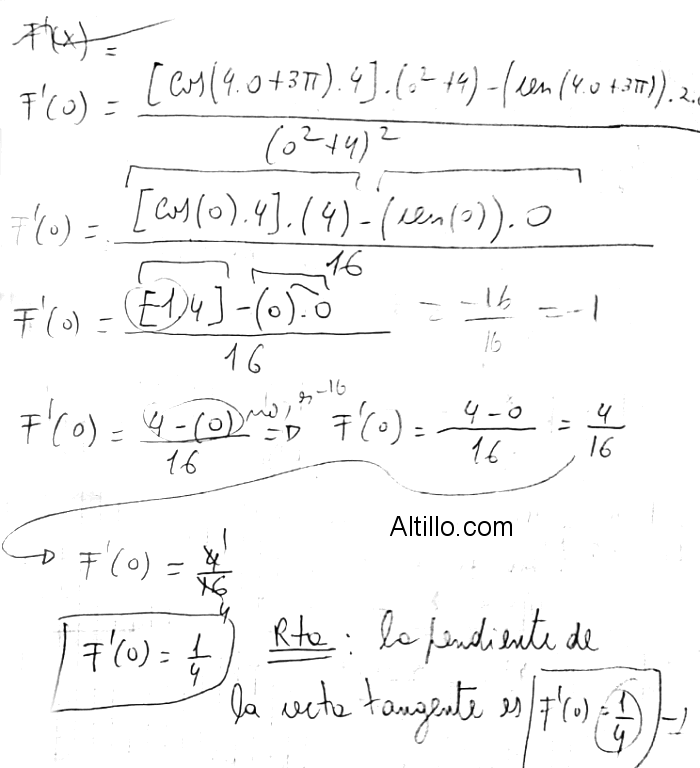 F'(x) =
F'(0) = [cos(4.0+3π).4].(0²+4)-(sen(4.0+3π)).2.0
(0²+4)²
F'(0) = [cos(0).4].(4)-(sen(0)).0
16
F'(0) = [-1.4]-(0).0 = -16/16 = -1
16
F'(0) = 4-(0)/16 no, es -16 => F'(0) = 4-0/16 = 4/16
Altillo.com
F'(0) = 4/16 1/4
F'(0) = 1/4 Rta : la pendiente de
la recta tangente es F'(0) = 1/4 -1